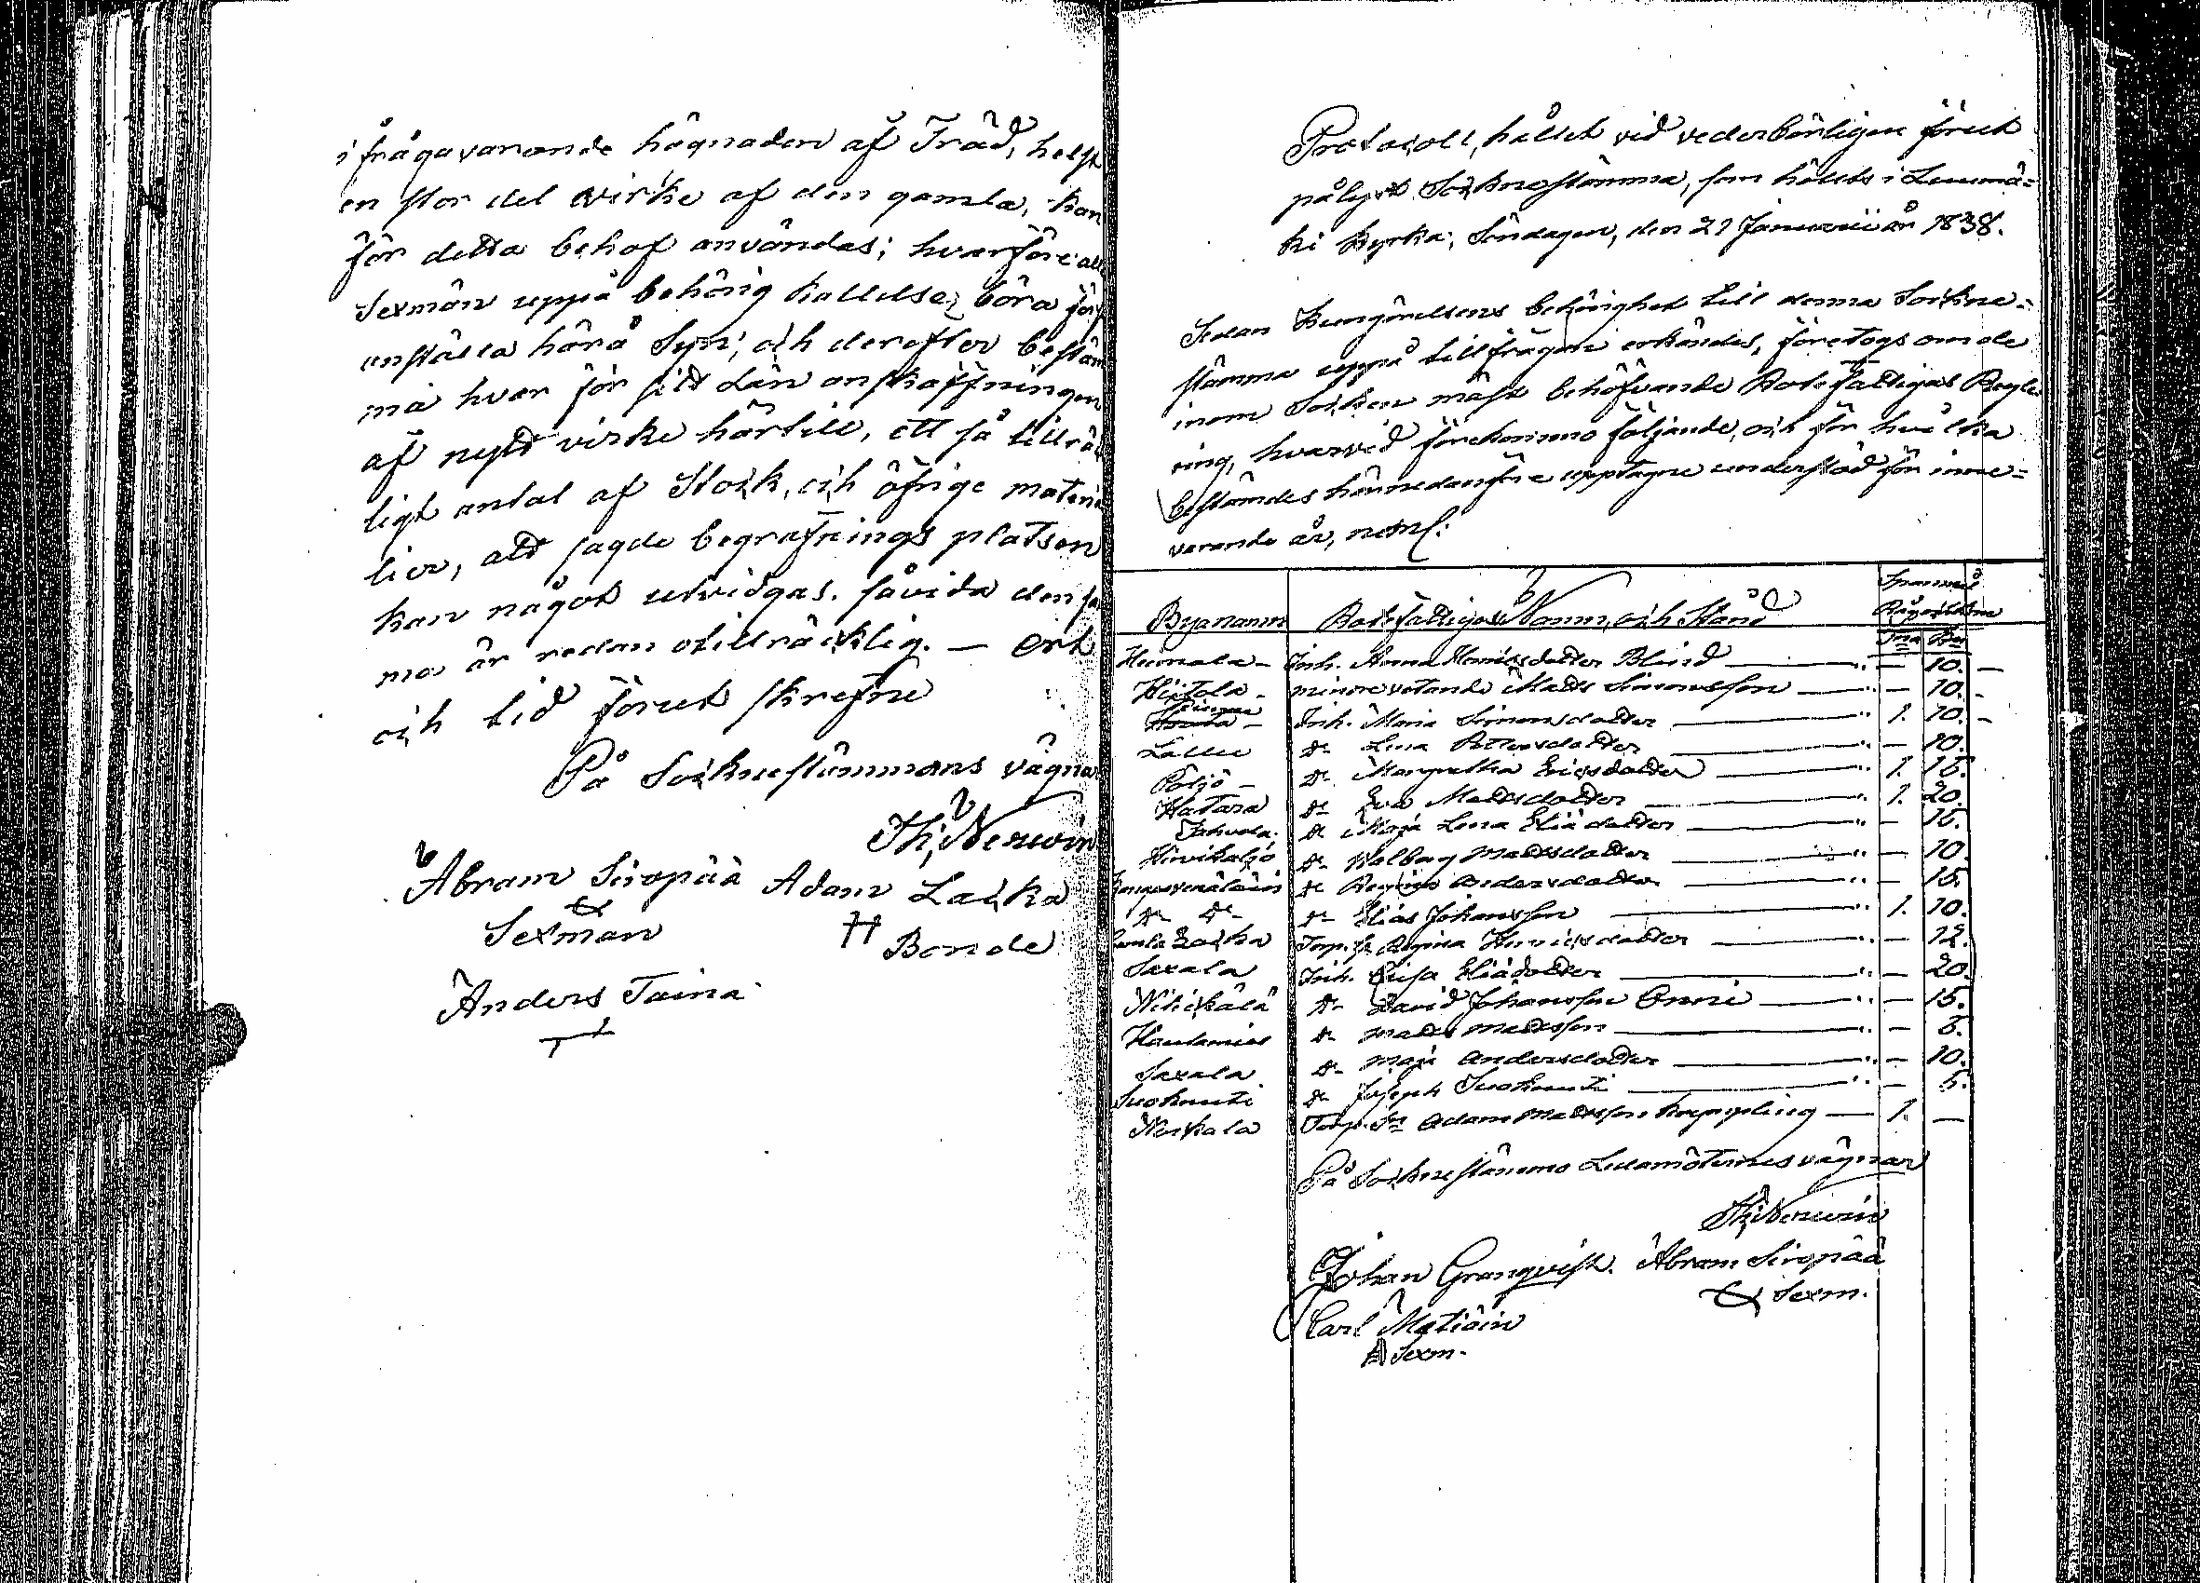 ifrågavarande hägnaden af Träd, helst
en stor del virke af den gamla, kan
för detta behof användas; hvarföre alle
Sexmän uppå behörig kallelse, böra för
anställa härå Syn, och derefter bestäm
ma hvar för sitt län anskaffningen
af nytt virke härtill, ett så tillräck
ligt antal af Stock, och öfrige materia
lier, att sagde begrafnings platsen
kan något utvidgas, såvida den sa
ma är redan otillräcklig. — Ort
och tid förut skrefne
På Socknestämmans vägnar
Th, Nerwin
Abram Siropää Adam Lacka
Sexman Bonde
Anders Taina
Protocoll, hållit vid vederbörligen förut
pålyst Socknestämma, som hölets i Luumä=
ki kyrka, Söndagen, den 21 Januarii år 1838.
Sedan Kungörelsens behörighet till denna Sockne=
stämma uppå tillfrågan erkändes, företogs om de
inom Socken mäst behöfvande Rotefattigas Regle
ring, hvarvid förekommo följande, och för hvilka
bestämdes härnedanföre upptagne understöd för inne=
varande år, neml:
Byanamn Rotefattigas Namn, och Stånd Spannmål
Råg
Heimala — Inh. Anna Henricsdotter Blind — 10. —
Hietola — minorevetande Matts Simonsson — 10. —
Inh. Maria Simonsdotter 1. 10. —
Lällu Do Lena Pettersdotter — 10.
Pöljö — Do Margretha Ericsdotter 1. 15.
Hatara Do Eva Mattsdotter 1. 20.
Jahvola Do Maja Lena Eliädotter — 15.
Hirvikaljo Do Walborg Mattsdotter — 10.
Do Andersdotter — 15.
Do Do Do Elias Johansson 1. 10.
Lacka Torp. Regina Henricsdotter — 12.
Saxala Inh. Luisa Eliädotter — 20.
Do David Johansson Onni — 15.
Hautamies Do Matts Mattsson — 5.
Saxala Do Maja Andersdotter — 10.
Suokuuti Do Joseph Suokuuti — 5.
Torp. Sn Adam Mattsson 1. —
På Socknestämmo Ledamöternes vägnar
Th, Nerwin
Johan Granqvist. Abram Siropää
Sexm.
Carl Matiäin
Sexm.